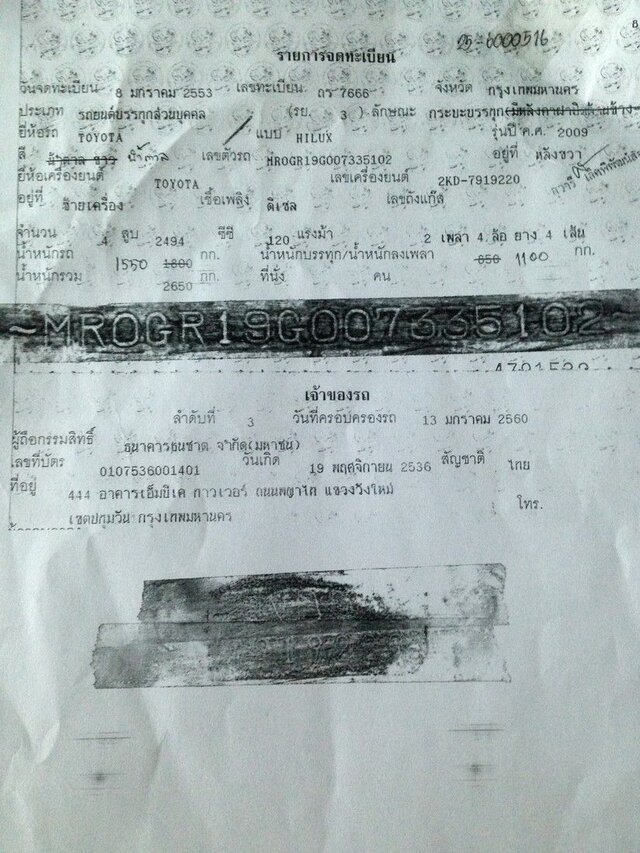 8
25-6000516
รายการจดทะเบียน
วันจดทะเบียน 8 มกราคม 2553 เลขทะเบียน ถร 7666 จังหวัด กรุงเทพมหานคร
ประเภท รถยนต์บรรทุกส่วนบุคคล (รย. 3 ) ลักษณะ กระบะบรรทุก(มีหลังคา
ยี่ห้อรถ TOYOTA แบบ HILUX รุ่นปี ค.ศ. 2009
สี น้ำตาล ขาว น้ำตาล เลขตัวรถ MROGR19G007335102 อยู่ที่ หลังขวา
ยี่ห้อเครื่องยนต์ TOYOTA เลขเครื่องยนต์ 2KD-7919220
อยู่ที่ ซ้ายเครื่อง เชื้อเพลิง ดีเซล เลขถังแก๊ส
จำนวน 4 สูบ 2494 ซีซี 120 แรงม้า 2 เพลา 4 ล้อ ยาง 4 เส้น
น้ำหนักรถ 1550 1800 กก. น้ำหนักบรรทุก/น้ำหนักลงเพลา 850 1100 กก.
น้ำหนักรวม 2650 กก. ที่นั่ง คน
~MROGR19G007335102~
เจ้าของรถ
ลำดับที่ 3 วันที่ครอบครองรถ 13 มกราคม 2560
ผู้ถือกรรมสิทธิ์ ธนาคารธนชาต จำกัด(มหาชน)
เลขที่บัตร 0107536001401 วันเกิด 19 พฤศจิกายน 2536 สัญชาติ ไทย
ที่อยู่ 444 อาคารเอ็มบีเค ทาวเวอร์ ถนนพญาไท แขวงวังใหม่
เขตปทุมวัน กรุงเทพมหานคร โทร.